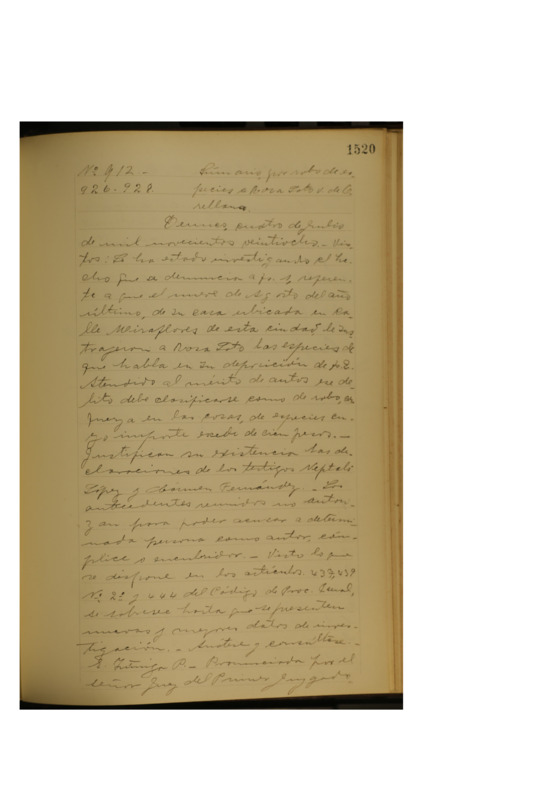 1520
Nº 912.- Sumario por robo de es-
926-928. pecies a Rosa Soto v. de O
rellana.
Temuco, cuatro de Junio
de mil novecientos veintiocho.- Vis-
tos: Se ha estado investigando el he-
cho que se denuncia a fs. 1, referen-
te a que el nueve de Agosto del año
último, de su casa ubicada en ca-
lle Miraflores de esta ciudad le sus-
trajeron a Rosa Soto las especies de
que habla en su deposición de fs 2.
Atendido el mérito de autos ese de-
lito debe clasificarse como de robo, con
fuerza en las cosas, de especies cu-
yo importe excede de cien pesos.-
Justifican su existencia las de-
claraciones de los testigos Neptalí
López y Carmen Fernández.- Los
antecedentes reunidos no autori-
zan para poder acusar a determi-
nada persona como autor, cóm-
plice o encubridor.- Visto lo que
se dispone en los artículos 437, 439
Nº 2º y 444 del Código de Proc. Penal,
se sobresee hasta que se presenten
nuevos y mejores datos de inves-
tigación.- Anótese y consúltese.-
Zúñiga R.- Pronunciada por el
señor Juez del Primer Juzgado